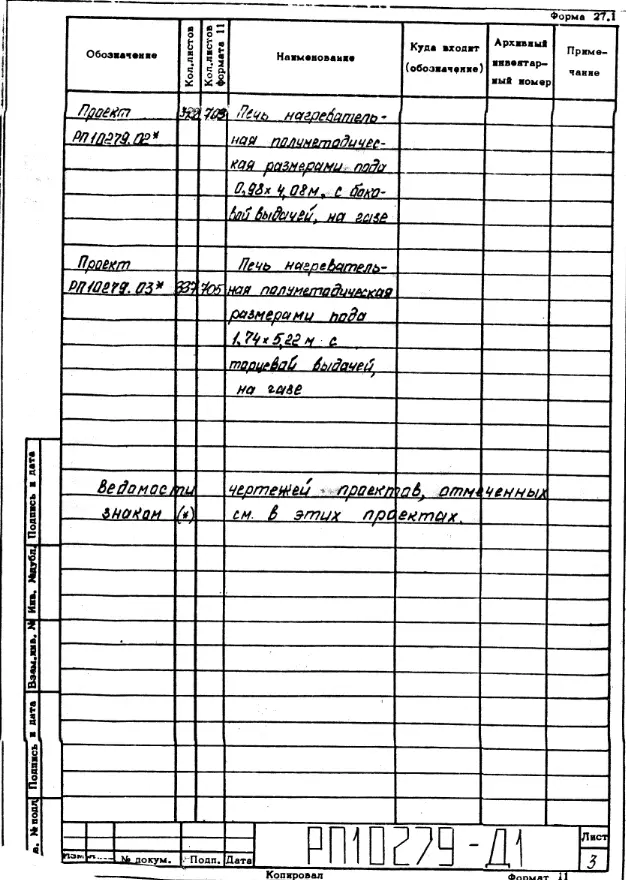 Форма 27.1
Обозначение Кол.листов Кол.листов формата 11 Наименование Куда входит (обозначение) Архивный инвентарный номер Примечание
Проект 703 Печь нагреватель-
РП10279.02* ная полуметодичес-
кая размерами пода
0,98х 4,08м, с боко-
вой выдачей, на газе
Проект Печь нагреватель-
РП10279.03* 337 705 ная полуметодическая
размерами пода
1.74х5,22 м с
торцевой выдачей,
на газе
Ведомости чертежей проектов, отмеченных
знаком (*) см. в этих проектах.
Подпись и дата
Инв. №дубл.
Взам.инв. №
Подпись и дата
№ подл
№ докум. Подп. Дата
РП10279-Д1
Лист
3
Копировал Формат 11